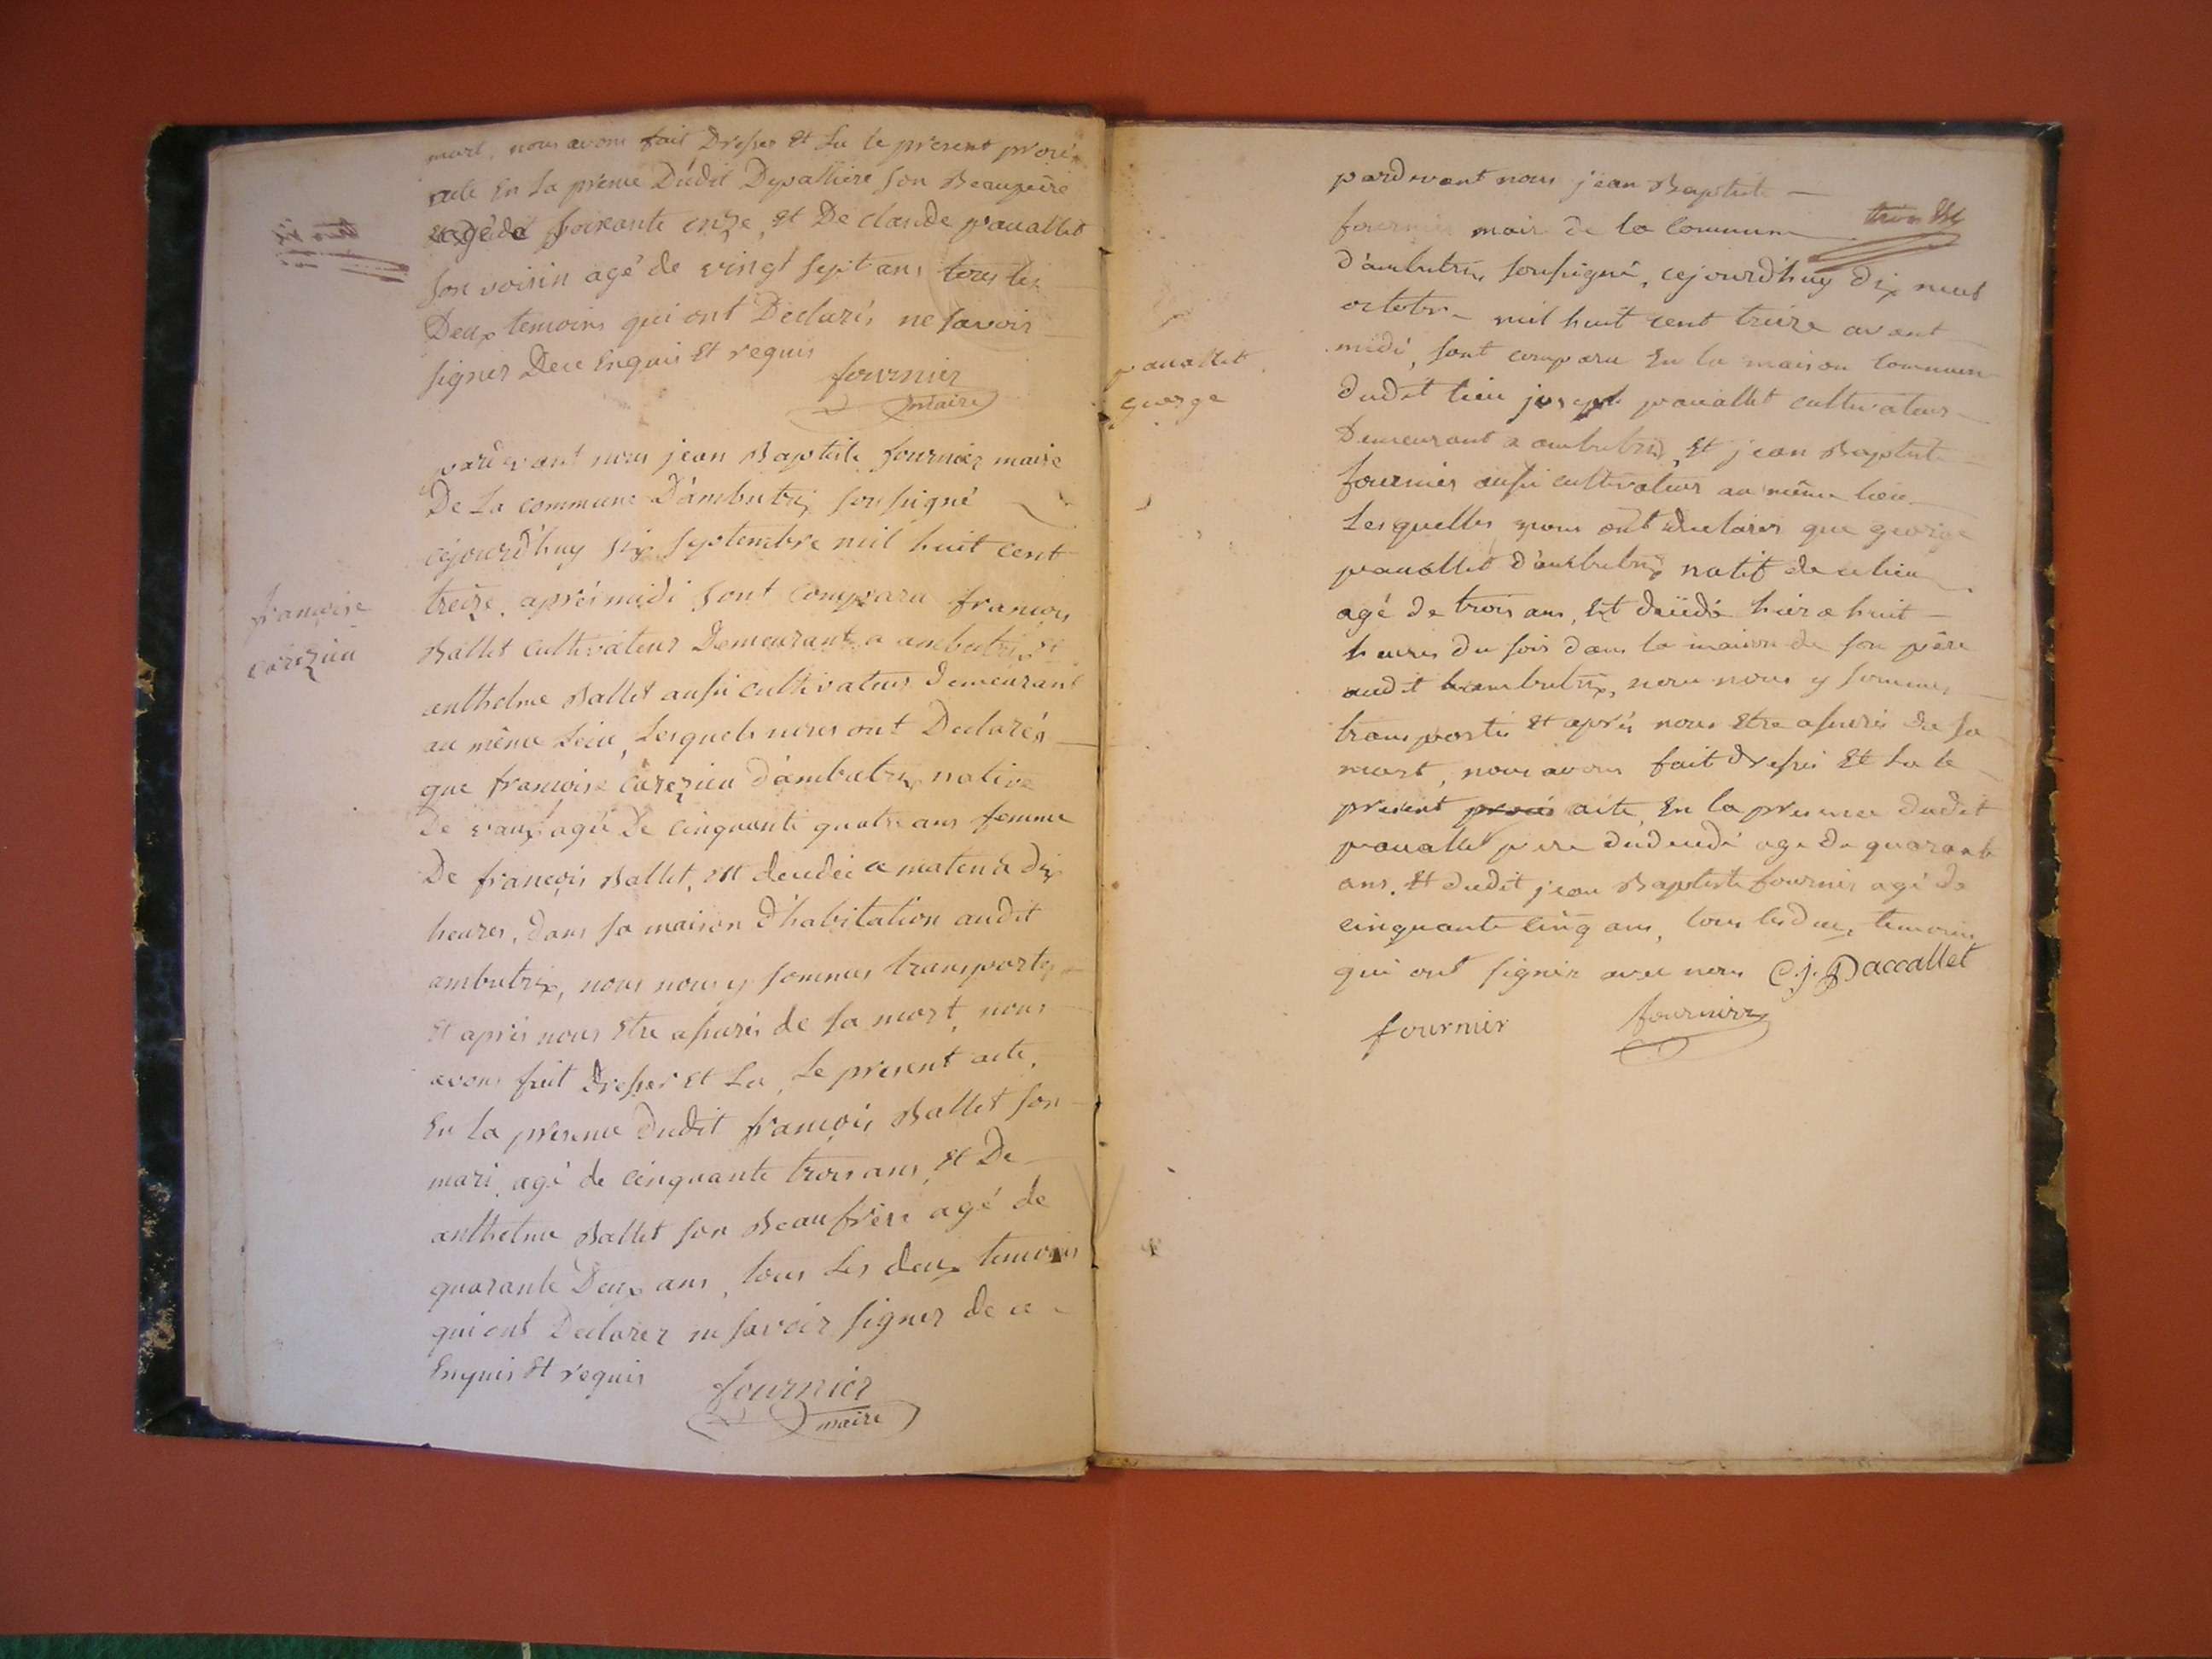 mort, nous avons fait Dresser Et Lu le present
acte En La présence Dudit Depalliere son Beaupère
agé de soixante onze, et De claude pauallet
son voisin agé de vingt sept ans tous les
Deux temoins qui ont Declarés ne savoir
signer Dece Enquis Et requis
fournier
maire
pardevant nous jean Baptiste fournier maire
De La commune D'ambutrix soussigné
cejourd'huy six septembre mil huit cent
treize, aprés midi sont comparu françois
françoise
carezieu
Ballet cultivateur Demeurant a ambutrix et
anthelme Ballet aussi cultivateur demeurant
au même Lieu, Lesquels nous ont Declarés
que françoise carezieu d'ambutrix native
De vaux agée De cinquante quatre ans femme
De françois Ballet, est decedée a matin à dix
heures, dans sa maison d'habitation audit
ambutrix, nous nous y sommes transportes
Et aprés nous Etre assurés de sa mort, nous
avons fait Dresser Et Lu, Le present acte,
En La présence dudit françois Ballet son
mari agé de cinquante trois ans, Et De
anthelme Ballet son Beaufrère agé de
quarante Deux ans, tous Les deux temoins
qui ont Declarer ne savoir signer de ce
Enquis Et requis
fournier
maire
pardevant nous jean Baptiste
fournier maire de la commune
d'ambutrix soussigné, cejourd'huy dix neuf
octobre mil huit cent treize avant
midi, sont comparu En la maison commune
pauallet
george
dudit lieu joseph pauallet cultivateur
Demeurant a ambutrix, Et jean Baptiste
fournier aussi cultivateur au même lieu
Lesquelles nous ont declarer que george
pauallet d'ambutrix natif de ce lieu
agé de trois ans, Est decedé hier a huit
heures du soir dans la maison de son père
audit ambutrix, nous nous y sommes
transportés Et aprés nous Etre assurés de sa
mort, nous avons fait dressé Et Lu le
present procés acte, En la presence dudit
pauallet pere du decedé agé de quarante
ans, Et dudit jean Baptiste fournier agé de
cinquante cinq ans, tous les deux temoins
qui ont signer avec nous C. j. Paccallet
fournier
fournier